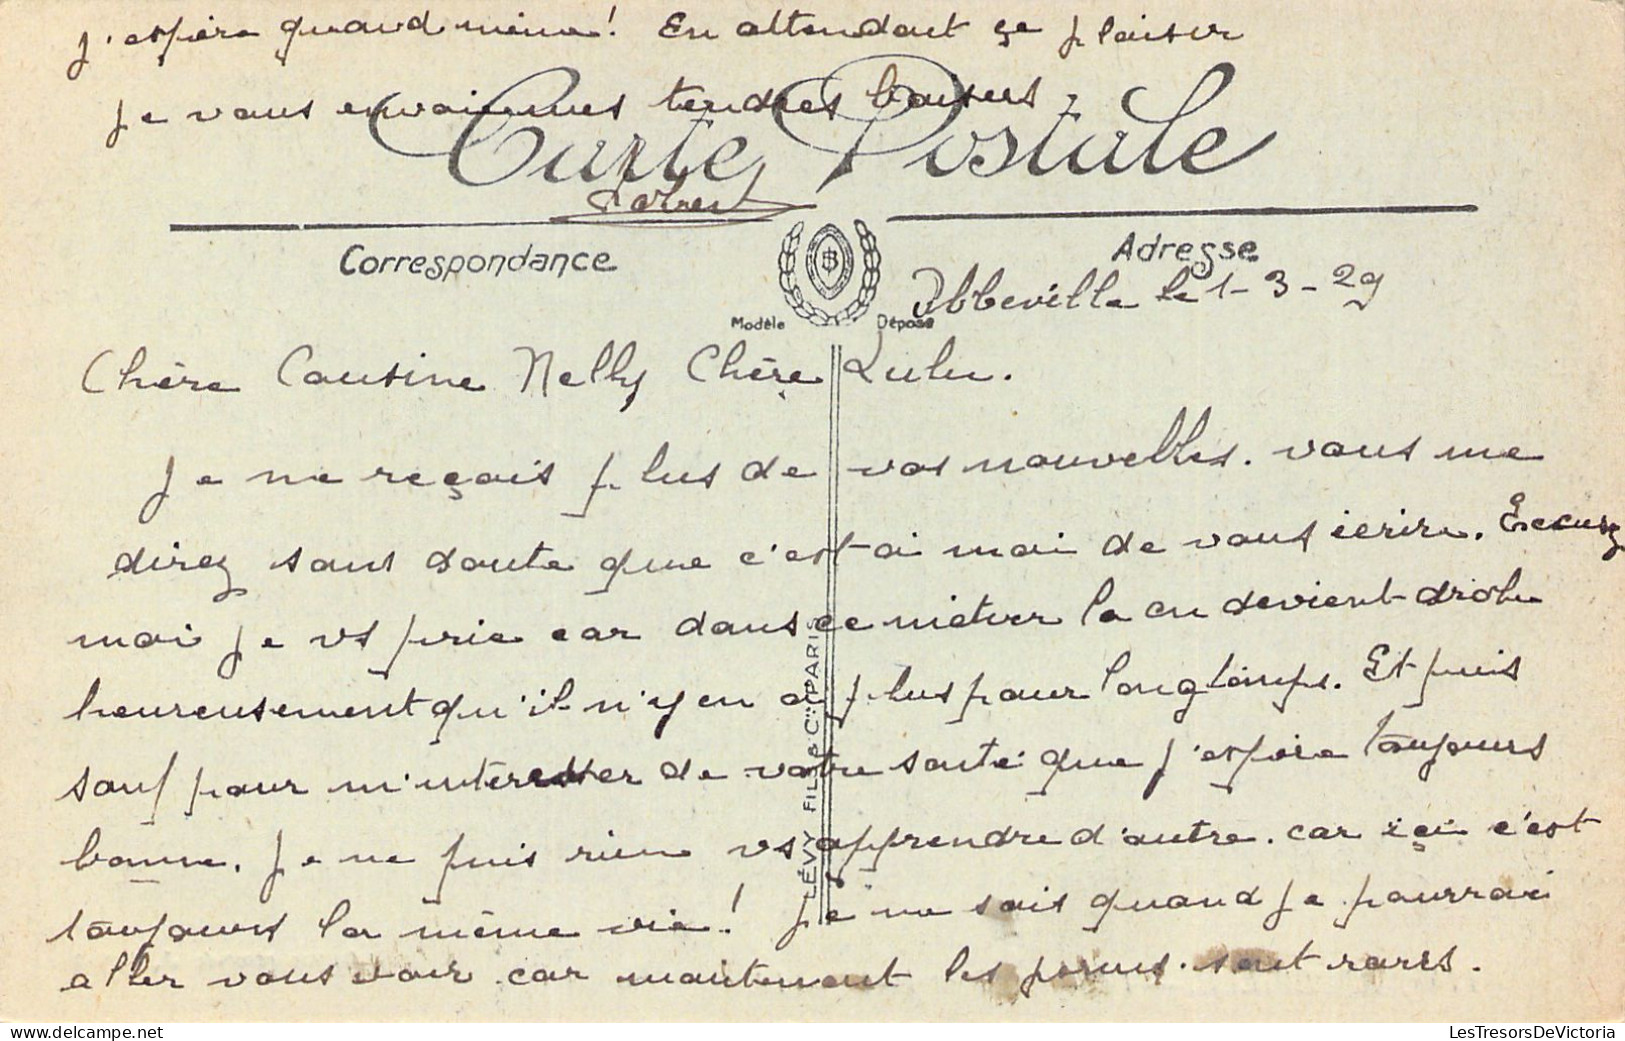 j'espère quand même! En attendant çe plaisir
je vous envoie mes tendres baisers
Carte Postale
Correspondance
Adresse
Modèle Déposé
Abbeville le 1-3-29
Chère Cousine Nelly Chère Lulu.
Je ne reçois plus de vos nouvelles. vous me
direz sans doute que c'est a moi de vous écrire. Excusez
moi je vs prie car dans ce métier la on devient drole
heureusement qu'il n'y en a plus pour longtemps. Et puis
sauf pour m'intéresser de votre santé que j'espère toujours
bonne. Je ne puis rien vs apprendre d'autre. car içi c'est
toujours la même vie! Je ne sais quand je pourrai
aller vous voir car maintenant les perms. sont rares.
LÉVY FILS & Cie PARIS
LesTresorsDeVictoria
https://www.delcampe.net